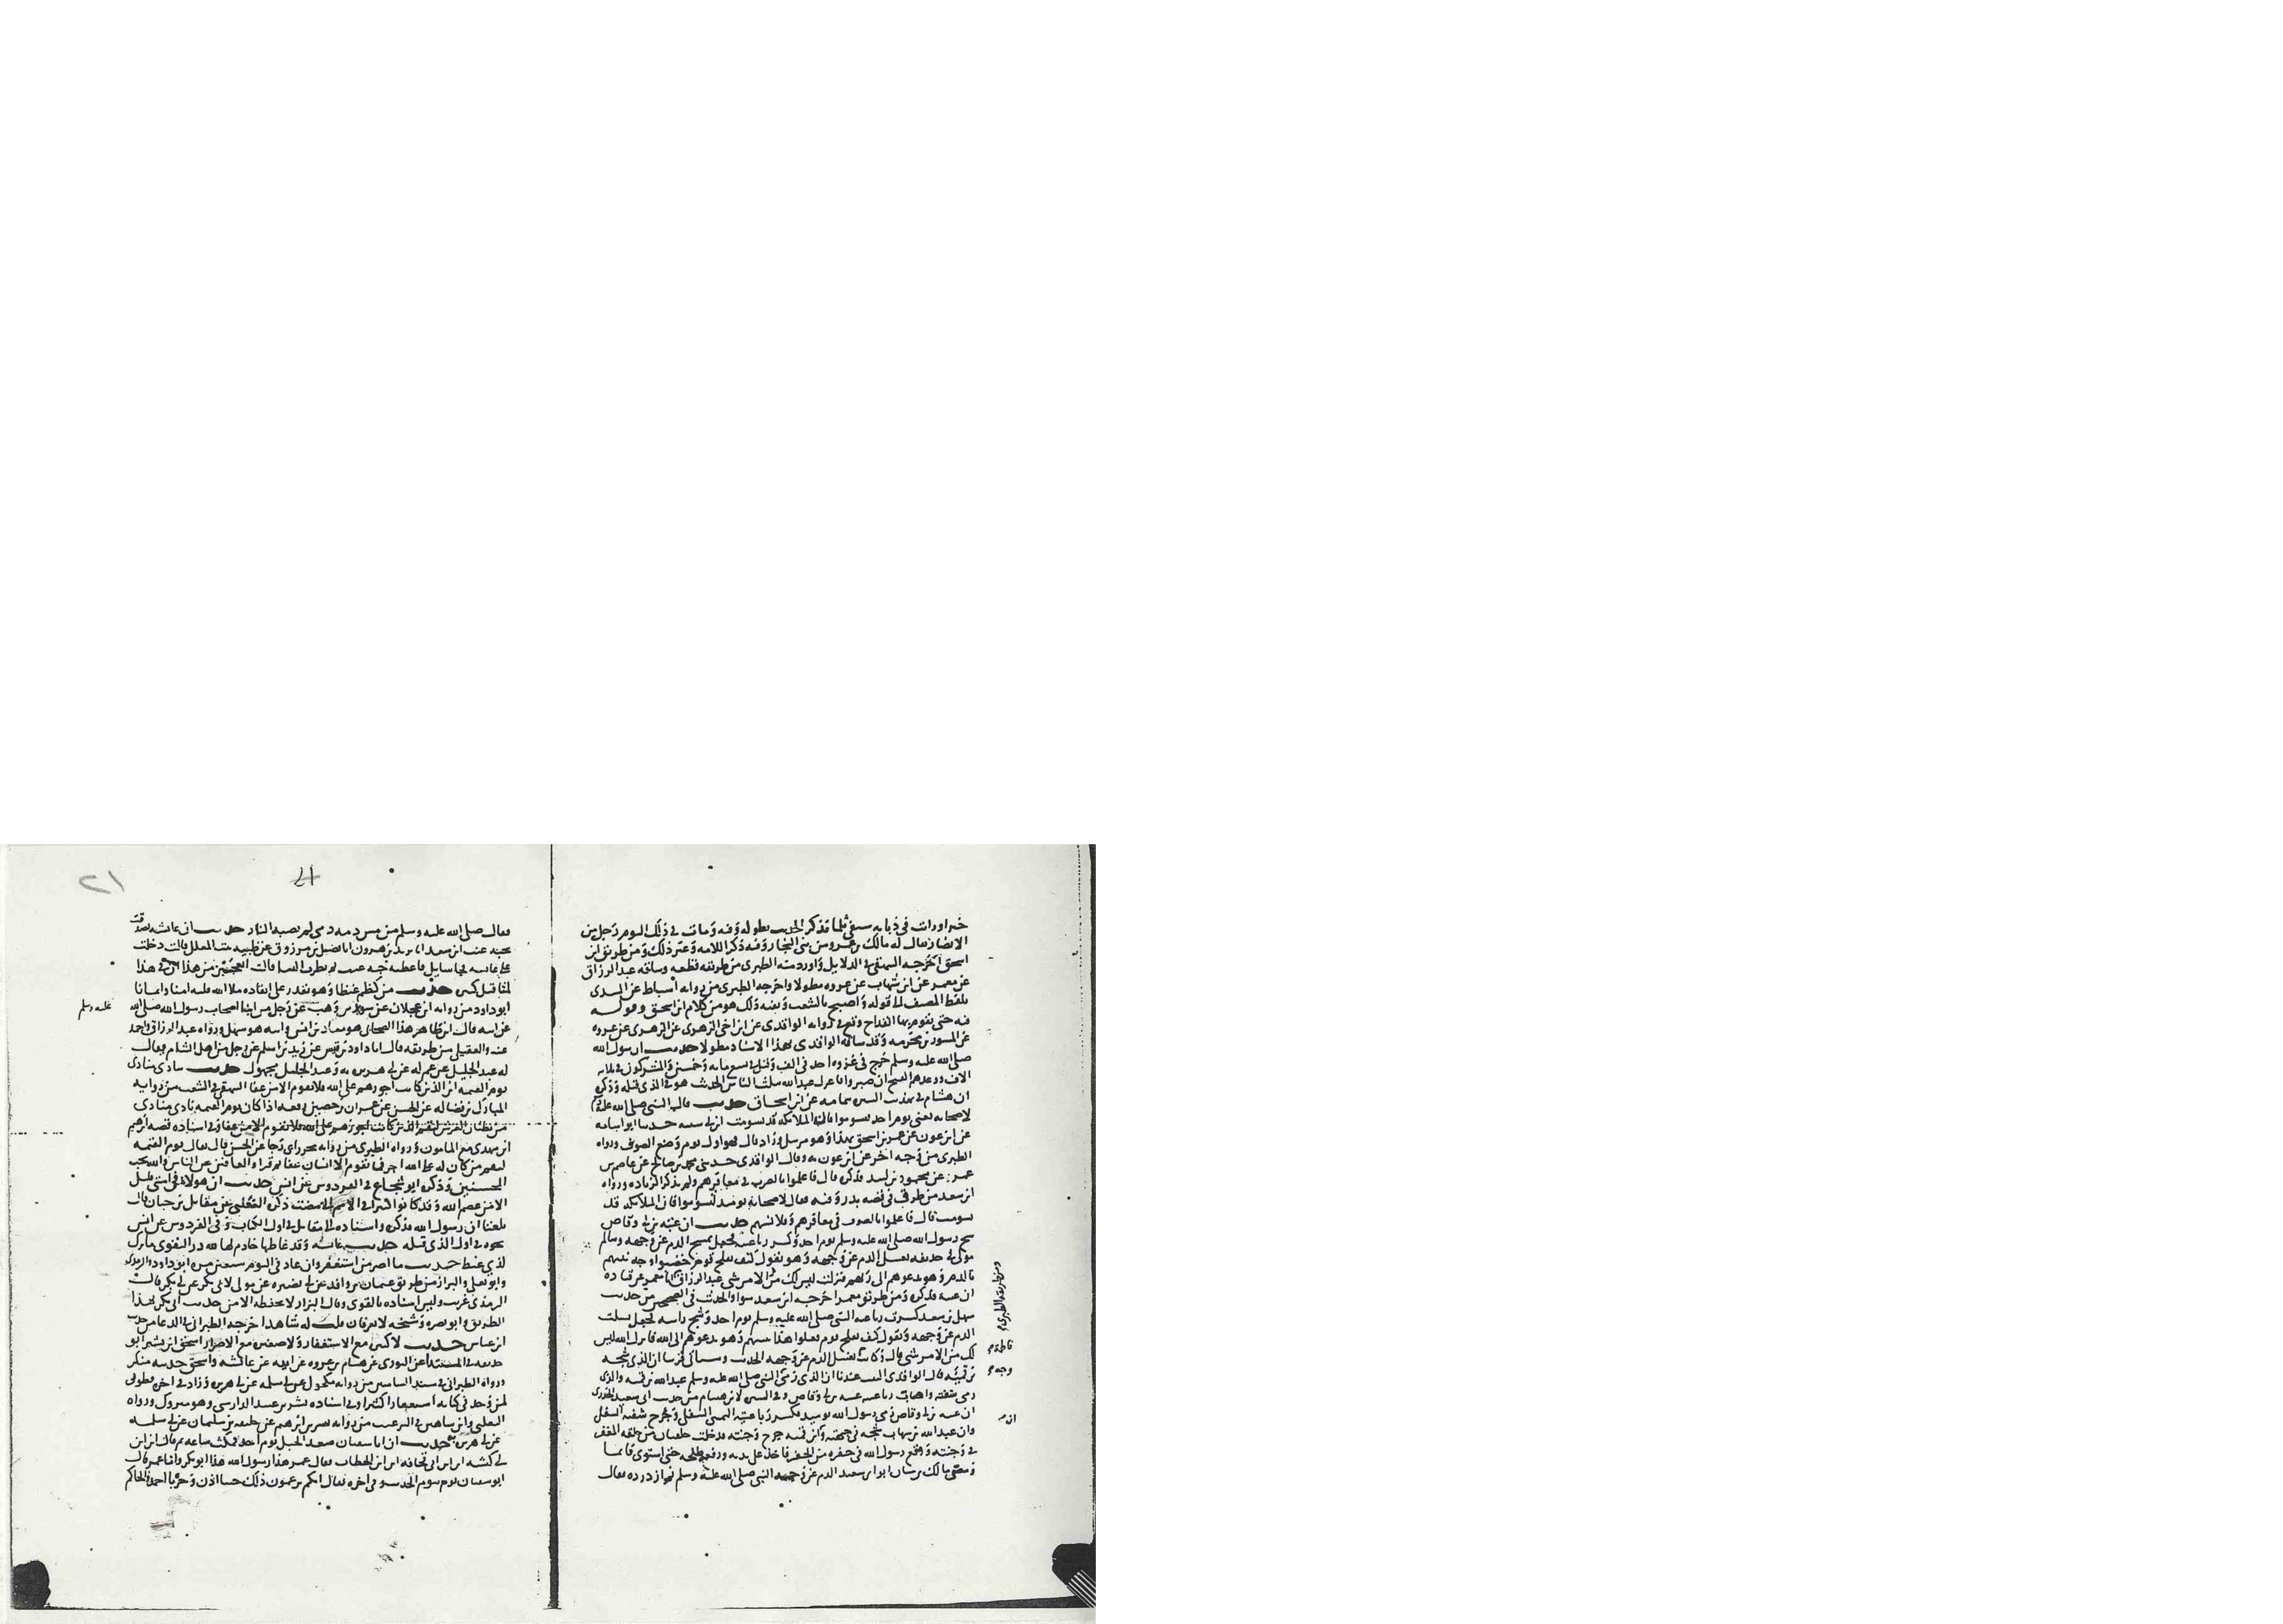 خيرا ورأيت في ذبابة سيفي ثلما فذكر الحديث بطوله وفيه ومات في ذلك اليوم رجل من
الأنصار يقال له مالك بن عمرو من بني النجار وفيه ذكر اللامة وغير ذلك ومن طريق ابن
اسحق أخرجه البيهقي في الدلايل وأورد منه الطبري من طريقه قطعه وساقه عبد الرزاق
عن معمر عن ابن شهاب عن عروه مطولا وأخرجه الطبري من روايه أسباط عن السدي
بلفظ المصنف إلى قوله وأصبح بالشعب وبقيه ذلك هو من كلام ابن اسحق وقوله
فيه حتى يقوم بها القداح وقع في روايه الواقدي عن ابن أخي الزهري عن الزهري عن عروه
عن المسور بن مخرمه وقد ساقه الواقدي بهذا الاسناد مطولا حديث ان رسول الله
صلى الله عليه وسلم خرج في غزوه احد في الف وقيل في تسع مايه وخمسين والمشركون في ثلاثه
الاف ووعدهم الفتح ان صبروا فانخزل عبد الله بثلث الناس الحديث هو في الذي قبله وذكره
ابن هشام في تهذيب السيره بتمامه عن ابن اسحاق حديث قال النبي صلى الله عليه وسلم
لأصحابه يعني يوم احد تسوموا فان الملائكه قد تسومت ابن ابي شيبه حدثنا ابو اسامه
عن ابن عون عن عمير بن اسحق بهذا وهو مرسل وزاد قال فهو اول يوم وضع الصوف ورواه
الطبري من وجه اخر عن ابن عون به وقال الواقدي حدثني محمد بن صالح عن عاصم بن
عمر عن محمود بن لبيد فذكره قال فاعلموا بالصوف في مغافرهم ولم يذكر الزياده ورواه
ابن سعد من طرق في قصه بدر وفيه فقال لأصحابه يومئذ تسوموا فان الملائكه قد
سومت قال فاعلموا بالصوف في مغافرهم وقلانسهم حديث ان عتبه بن ابي وقاص
شج رسول الله صلى الله عليه وسلم يوم احد وكسر رباعيته فجعل يمسح الدم عن وجهه وسالم
مولى ابي حذيفه يغسل الدم عن وجهه وهو يقول كيف يفلح قوم خضبوا وجه نبيهم
بالدم وهو يدعوهم الى ربهم فنزلت ليس لك من الامر شي عبد الرزاق انا معمر عن قتاده
ان عتبه فذكره ومن طريق معمر اخرجه ابن سعد سواء والحديث في الصحيحين من حديث
سهل بن سعد كسرت رباعيه النبي صلى الله عليه وسلم يوم احد وشج راسه فجعل يسلت
الدم عن وجهه ويقول كيف يفلح قوم فعلوا هذا بنبيهم وهو يدعوهم الى الله فانزل الله ليس
لك من الامر شي قال وكانت تغسل الدم عن وجهه الحديث وسياتي قريبا ان الذي شجه
بن قميئه قال الواقدي الثبت عندنا ان الذي رمى النبي صلى الله عليه وسلم عبد الله بن قميه والذي
رمى شفته واصاب رباعيته عتبه بن ابي وقاص وفي السيره لابن هشام من حديث ابي سعيد الخدري
ان عتبه بن ابي وقاص رمى رسول الله يوميد فكسر رباعيته اليمنى السفلى وجرح شفته السفلى
وان عبد الله بن شهاب شجه في جبهته وان ابن قميه جرح وجنته فدخلت حلقتان من حلقه المغفر
في وجنته ووقع رسول الله في حفره من الحفر فاخذ علي بيده ورفعه طلحه حتى استوى قائما
ومص مالك بن سنان ابو ابي سعيد الدم عن وجه النبي صلى الله عليه وسلم ثم ازدرده فقال
ومن طريقه الطبري
فاطمة
وجه
ان
٢١
فقال صلى الله عليه وسلم من مس دمه دمي لم تصبه النار حديث ان عايشه تصدقت
بحبه عنب ابن سعد انا يزيد بن هرون انا فضيل بن مرزوق عن ظبيه بنت المعلل قالت دخلت
على عايشه فجا سايل فاعطته حبه عنب
لهذا قيل كثير حديث من كظم غيظا وهو يقدر على انفاذه ملا الله قلبه امنا وايمانا
ابو داود من روايه ابن عجلان عن سويد بن وهب عن رجل من ابنا اصحاب رسول الله صلى الله
عليه وسلم
عن ابيه قال ابن طاهر هذا الصحابي هو معاذ بن انس وابنه هو سهل ورواه عبد الرزاق واحمد
عنه والعقيلي من طريقه قال انا داود بن قيس عن زيد بن اسلم عن رجل من اهل الشام يقال
له عبد الجليل عن عم له عن ابي هريره به وعبد الجليل مجهول حديث ينادي منادي
يوم القيمه اين الذين كانت اجورهم على الله فلا يقوم الا من عفا البيهقي في الشعب من روايه
المبارك بن فضاله عن الحسن عن عمران بن حصين رفعه اذا كان يوم القيمه نادى منادي
من بطنان العرش ليقم الذين كانت اجورهم على الله فلا يقوم الا من عفا وفي اسناده قصه ابراهيم
ابن مهدي مع المامون ورواه الطبري من روايه محرز ابي رجا عن الحسن قال يقال يوم القيمه
ليقم من كان له على الله اجر فما يقوم الا انسان عفا ثم قرا والعافين عن الناس والله يحب
المحسنين وذكره ابو شجاع في الفردوس عن انس حديث ان هولاء في امتي قليل
الا من عصم الله وقد كانوا كثيرا في الامم التي مضت ذكره الثعلبي عن مقاتل بن حيان قال
بلغنا ان رسول الله فذكره واسناده الى مقاتل في اول الكتاب وفي الفردوس عن انس
نحوه في اول الذي قبله حديث عايشه وقد غاظها خادم لها لله در التقوى ما تركت
لذي غيظ حديث ما اصر من استغفر وان عاد في اليوم سبعين مره ابو داود والترمذي
وابو يعلى والبزار من طريق عثمان بن واقد عن ابي نصيره عن مولى لابي بكر عن ابي بكر قال
الترمذي غريب وليس اسناده بالقوي وقال البزار لا نحفظه الا من حديث ابي بكر بهذا
الطريق وابو نصيره وشيخه لا يعرفان قلت له شاهد اخرجه الطبراني في الدعا من حديث
ابن عباس حديث لا كبير مع الاستغفار ولا صغير مع الاصرار اسحق بن بشر ابو
حذيفه في المبتدا عن الثوري عن هشام بن عروه عن ابيه عن عائشه واسحق حديثه منكر
ورواه الطبراني في مسند الشاميين من روايه مكحول عن ابي سلمه عن ابي هريره وزاد في اخره فطوبى
لمن وجد في كتابه استغفارا كثيرا وفي اسناده بشر بن عبيد الدارسي وهو متروك ورواه
الثعلبي وابن شاهين في الترغيب من روايه بشر بن ابراهيم عن خليفه بن سليمان عن ابي سلمه
عن ابي هريره حديث ان ابا سفيان صعد الجبل يوم احد فمكث ساعه ثم قال اين ابن
ابي كبشه اين ابن ابي قحافه اين ابن الخطاب فقال عمر هذا رسول الله هذا ابو بكر وانا عمر قال
ابو سفيان يوم بيوم الحديث وفي اخره فقال انكم تزعمون ذلك خبنا اذن وخسرنا احمد والحاكم